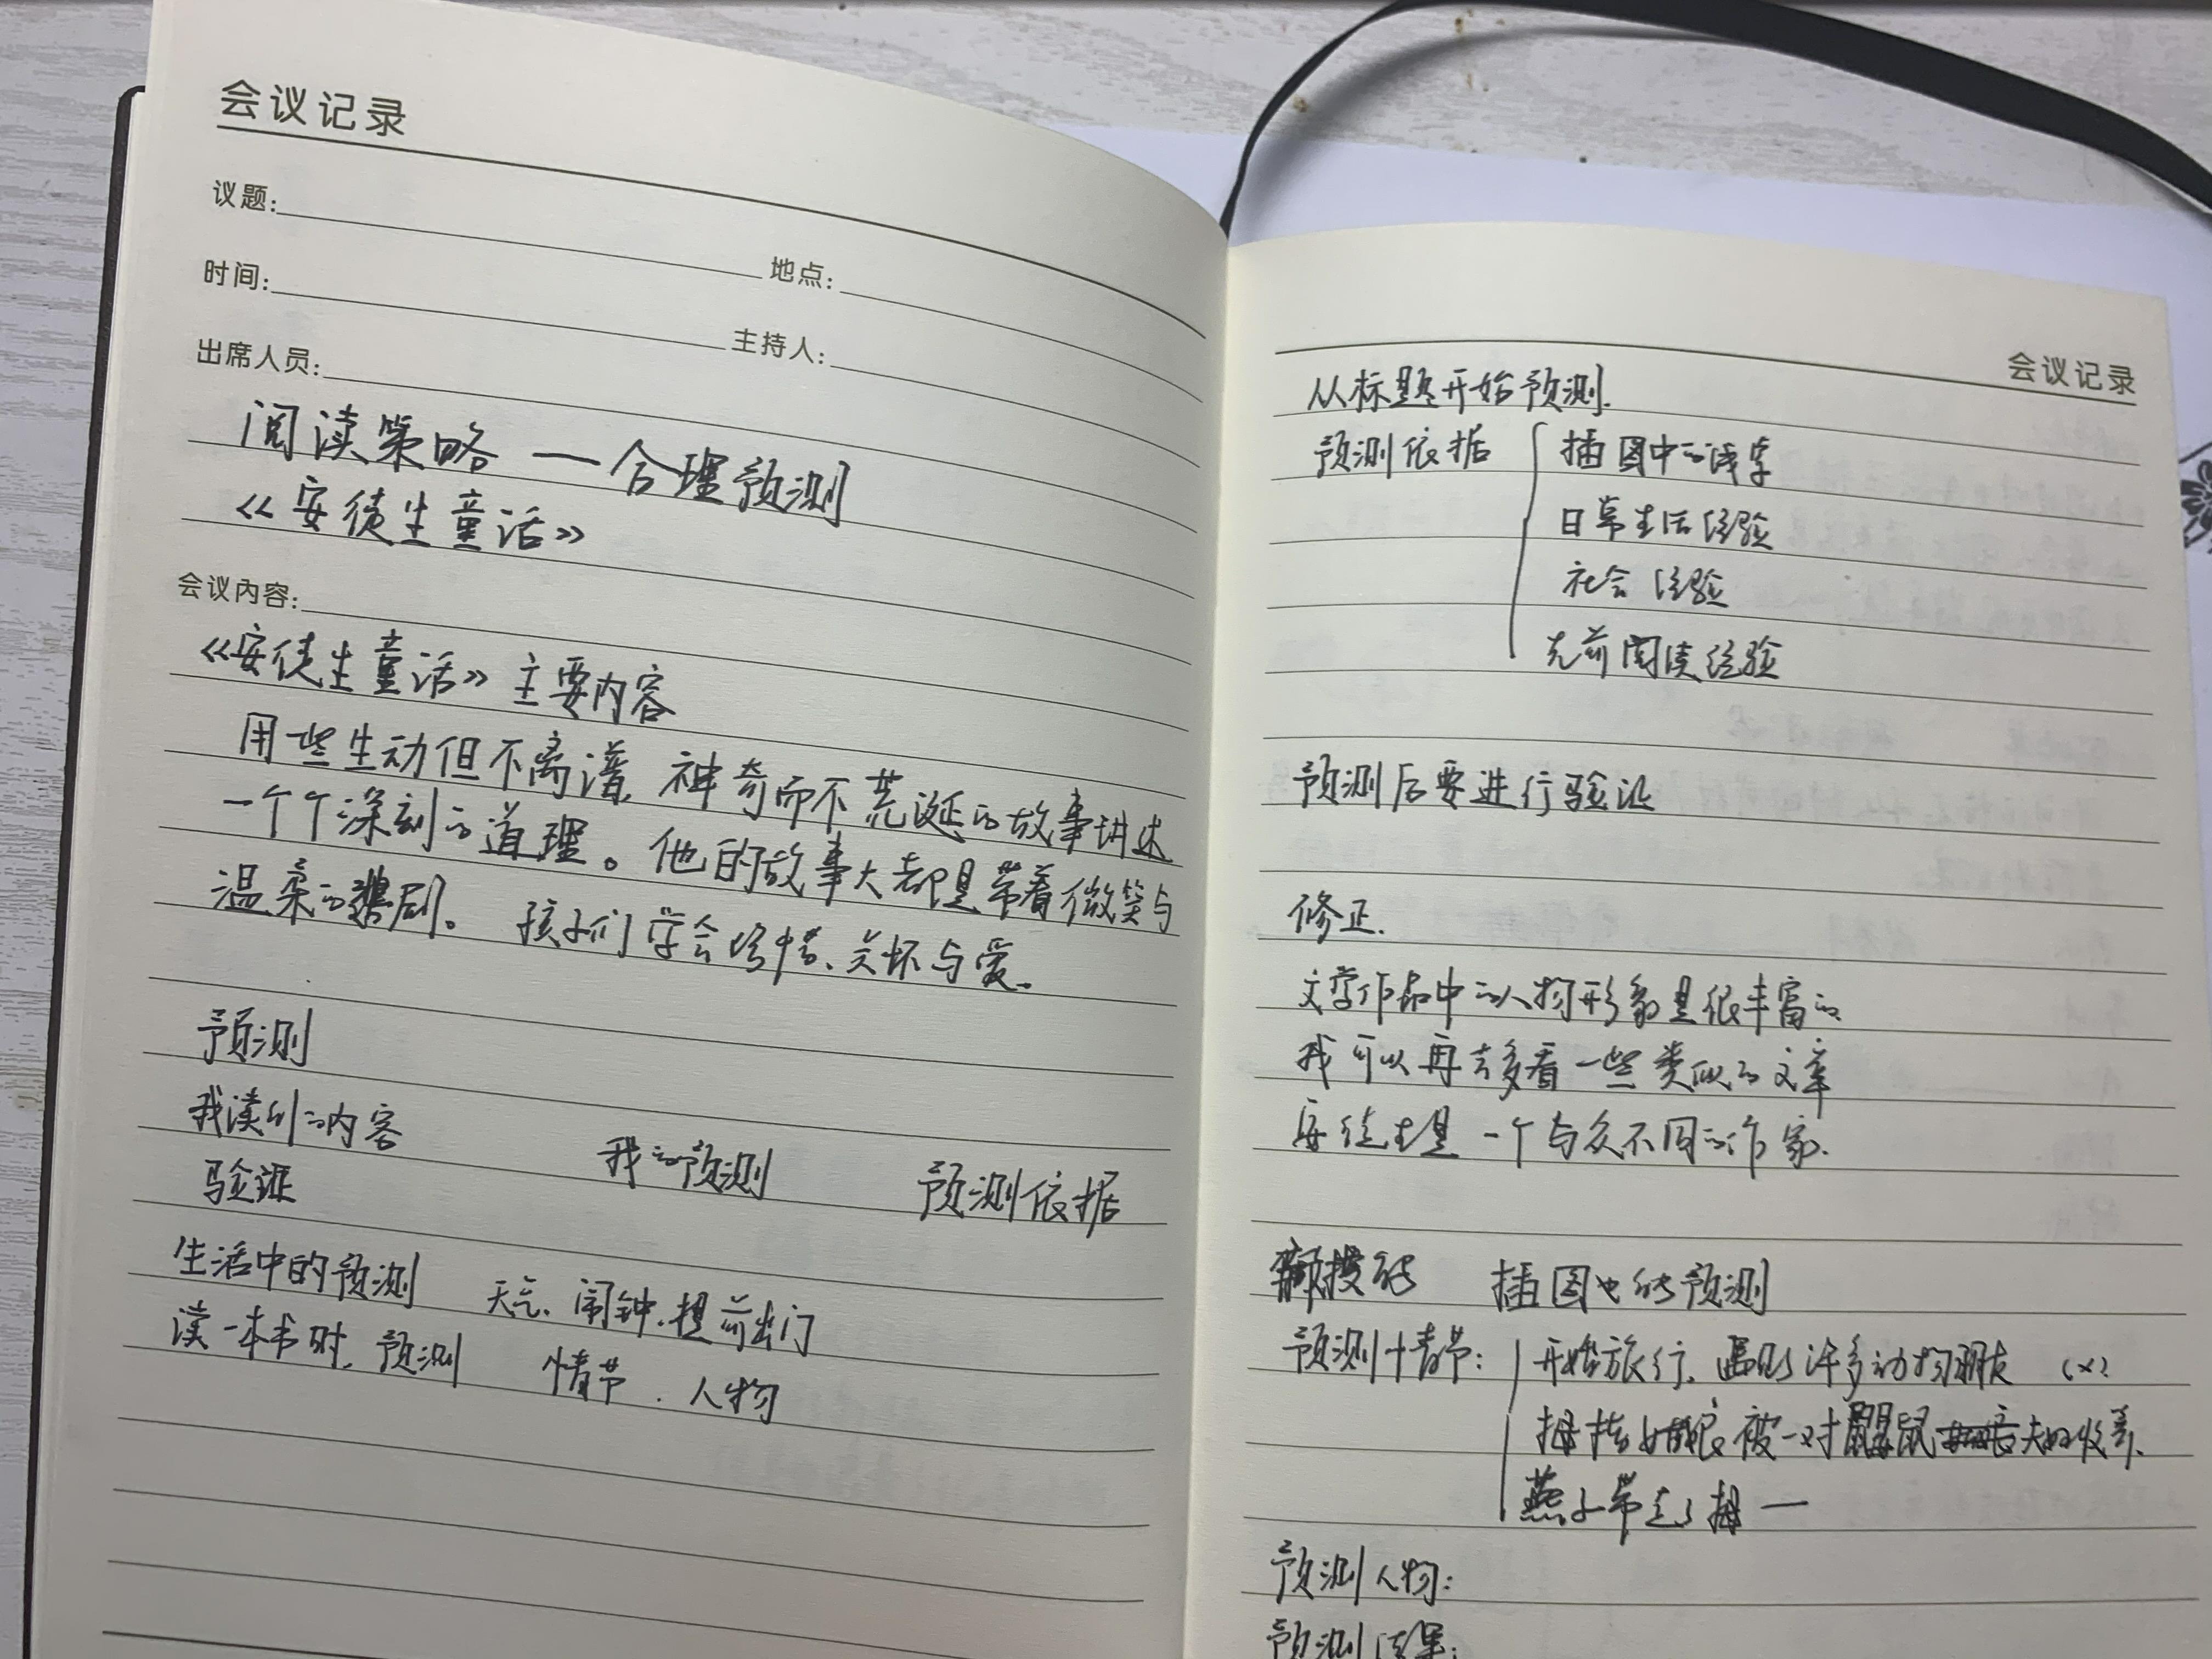 会议记录
议题:
地点:
时间:
主持人:
出席人员:
阅读策略 — 合理预测
《安徒生童话》
会议内容:
《安徒生童话》 主要内容
用一些生动但不离谱,神奇而不荒诞的故事讲述
一个个深刻的道理。他的故事大都是带着微笑与
温柔的悲剧。 孩子们学会珍惜、关怀与爱。
预测
我读到的内容 我的预测 预测依据
验证
生活中的预测 天气、闹钟、提前出门
读一本书时,预测 情节、人物
会议记录
从标题开始预测.
预测依据 插图中的
日常生活经验
社会经验
先前阅读经验
预测后要进行验证
修正.
文学作品中的人物形象是很丰富的
我可以再去多看一些类似的文章
安徒生是一个与众不同的作家.
插图也能预测
预测情节: 开始旅行,遇见许多动物朋友 (×)
拇指姑娘被一对鼹鼠夫妇收养.
燕子带走了拇一
预测人物:
预测结果: